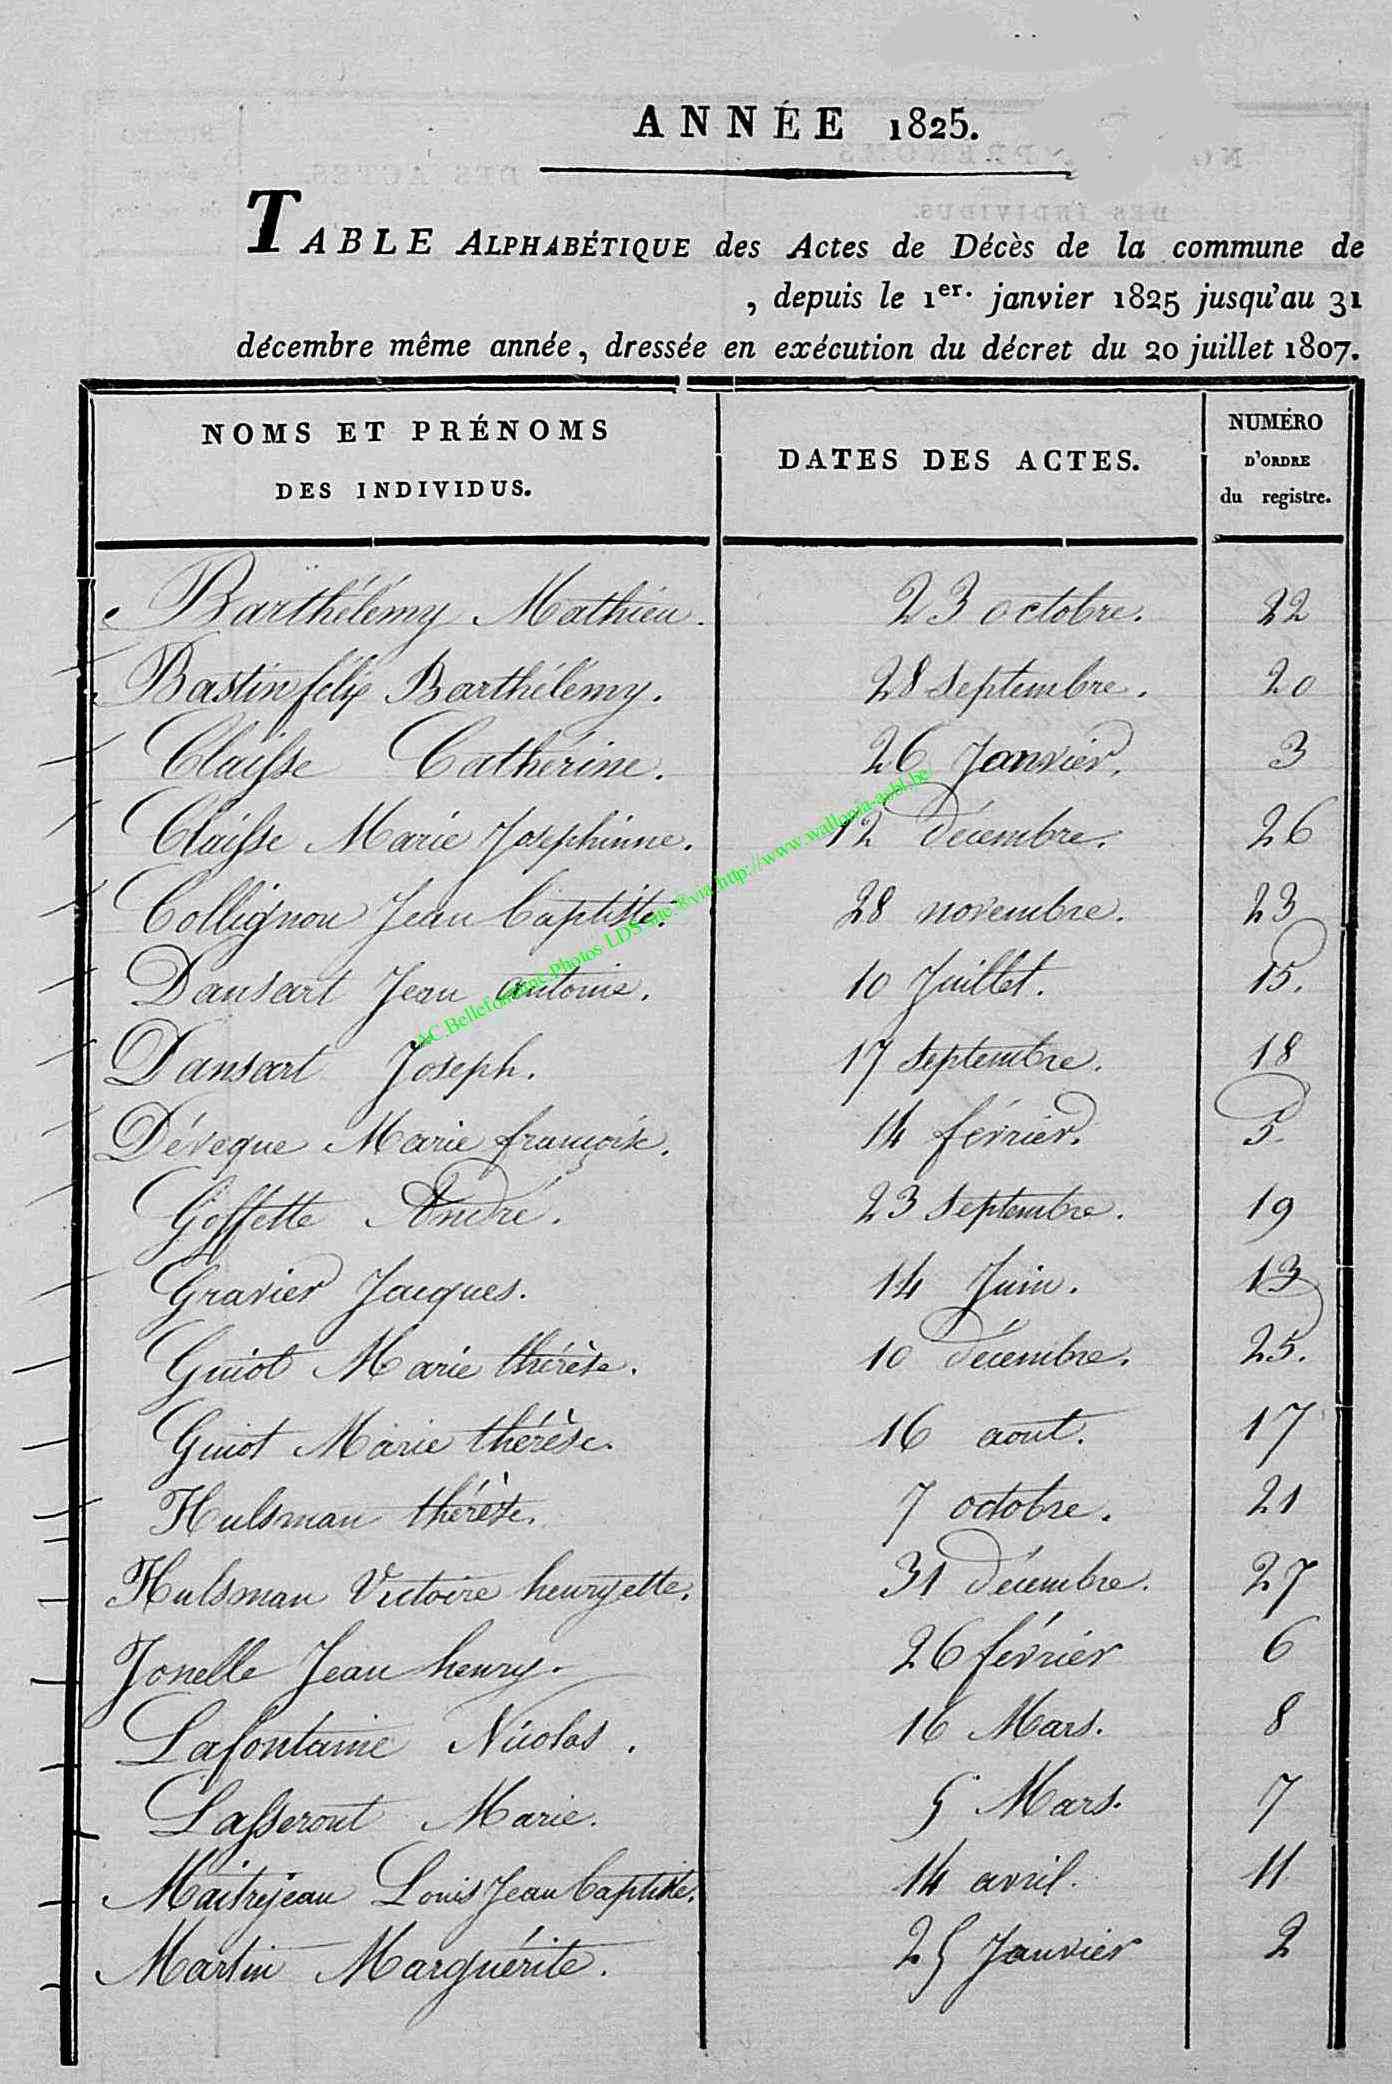 ANNÉE 1825.
TABLE ALPHABÉTIQUE des Actes de Décès de la commune de
, depuis le 1er. janvier 1825 jusqu'au 31
décembre même année, dressée en exécution du décret du 20 juillet 1807.
NOMS ET PRÉNOMS
DES INDIVIDUS.
DATES DES ACTES.
NUMÉRO
D'ORDRE
du registre.
Barthélémy Mathieu. 23 octobre. 22
Bastin félix Barthélémy. 28 septembre. 20
Claisse Catherine. 26 Janvier. 3
Claisse Marie Josephinne. 12 décembre. 26
Collignon Jean baptiste. 28 novembre. 23
Dansart Jean antoine. 10 Juillet. 15.
Dansart Joseph. 17 septembre. 18
Déveque Marie françoise. 14 février. 5.
Goffette André. 23 septembre. 19
Gravier Jacques. 14 Juin. 13
Guiot Marie thérèse. 10 décembre. 25.
Guiot Marie thérèse. 16 aout. 17
Hulsman thérèse. 7 octobre. 21
Hulsman Victoire henryette. 31 décembre. 27
Jonelle Jean henry. 26 février 6
Lafontaine Nicolas. 16 Mars. 8
Lasseront Marie. 5 Mars. 7
Maitrejean Louis Jean baptiste. 14 avril. 11
Martin Marguérite. 25 Janvier 2
AC.Bellefontaine Photos LDS site via http://www.wallonia-asbl.be/